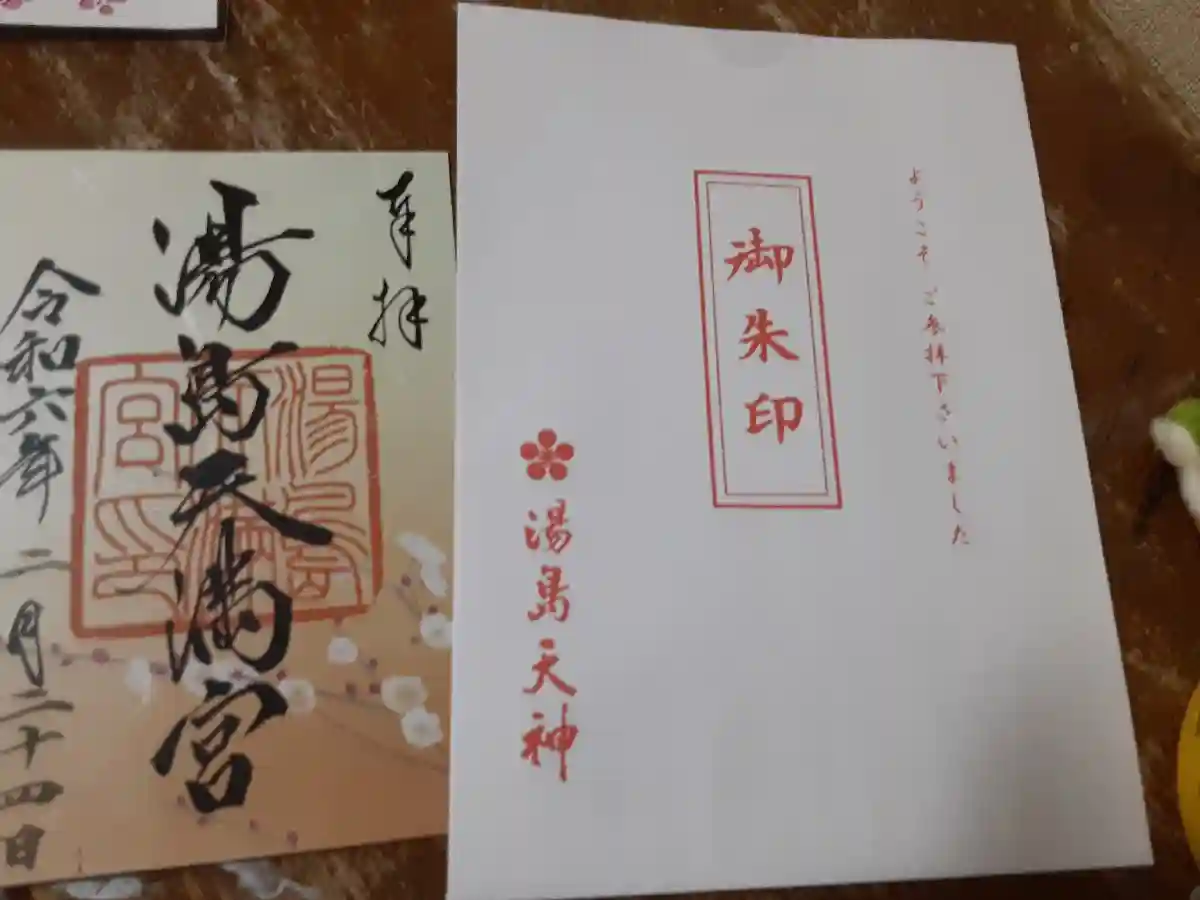 奉拝
湯島天満宮
令和六年 二月二十四日
湯島天満宮印
ようこそ ご参拝下さいました
御朱印
湯島天神